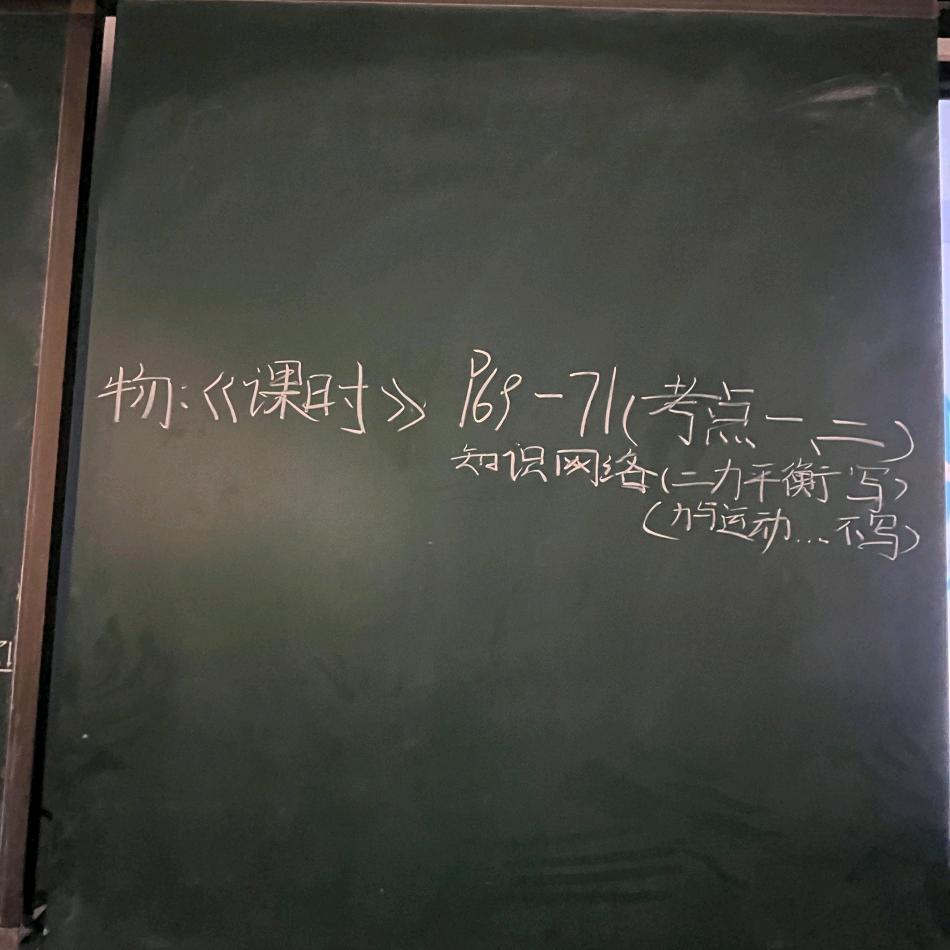 物:《课时》 P69-71(考点一、二)
知识网络(二力平衡 写)
(力与运动...不写)